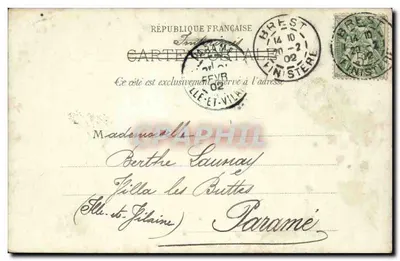 RÉPUBLIQUE FRANÇAISE
CARTE POSTALE
Ce côté est exclusivement réservé à l'adresse
BREST
14 10
20 -2
02
FINISTERE
BREST
FINISTERE
PARAMÉ
FEVR
02
ILLE-ET-VILNE
Mademoiselle
Berthe Launay
Villa les Buttes
(Ille-et-Vilaine) Paramé